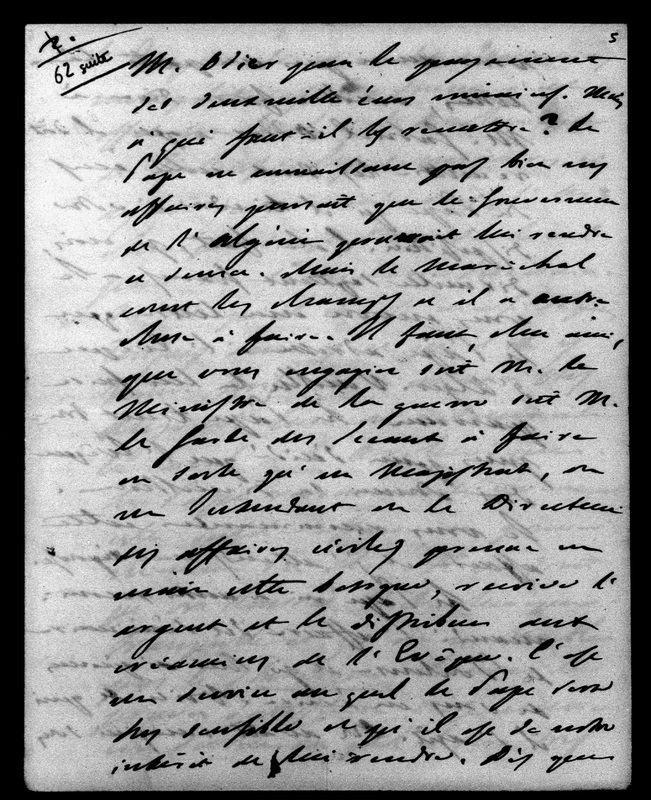 5
62 suite
M. Odier pour le payement
des deux mille écus romains. Mais
à qui faut-il les remettre? Le
Pape ne connaissant pas bien nos
affaires pensait que le Gouverneur
de l'Algérie pourrait lui rendre
ce service. Mais le Maréchal
court les champs et il a autre
chose à faire. Il faut, cher ami,
que vous engagiez soit M. le
Ministre de la guerre soit M.
le Garde des Sceaux à faire
en sorte qu'un Magistrat, ou
un Intendant ou le Directeur
des affaires civiles prenne en
main cette besogne, reçoive l'
argent et le distribue aux
créanciers de l'Evêque. C'est
un service auquel le Pape sera
très sensible et qu'il est de notre
intérêt de lui rendre. Dès que